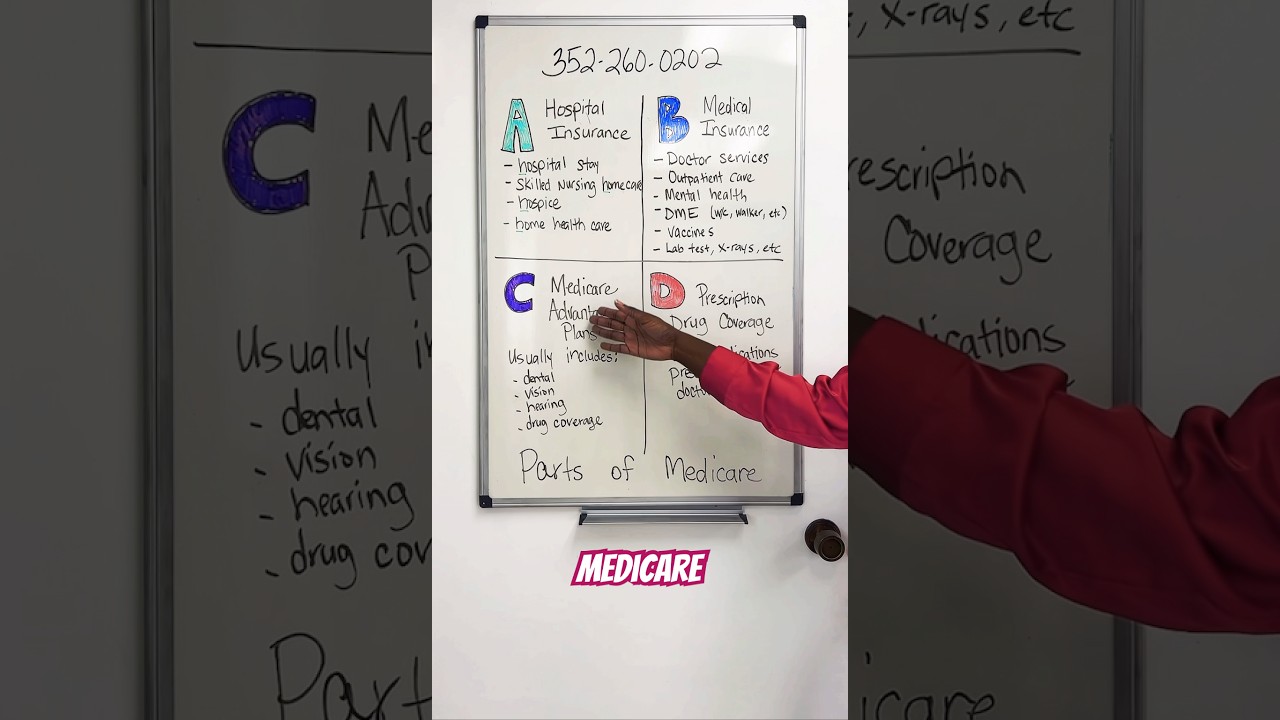 352-260-0202
A Hospital
Insurance
- hospital stay
- Skilled Nursing homecare
- hospice
- home health care
B Medical
Insurance
- Doctor services
- Outpatient care
- Mental health
- DME (w/c, walker, etc)
- Vaccines
- Lab test, x-rays, etc
C Medicare
Plans
Usually includes:
- dental
- vision
- hearing
- drug coverage
D Prescription
Drug Coverage
Parts of Medicare
MEDICARE
C
Usually
- dental
- vision
- hearing
x-rays, etc
Coverage